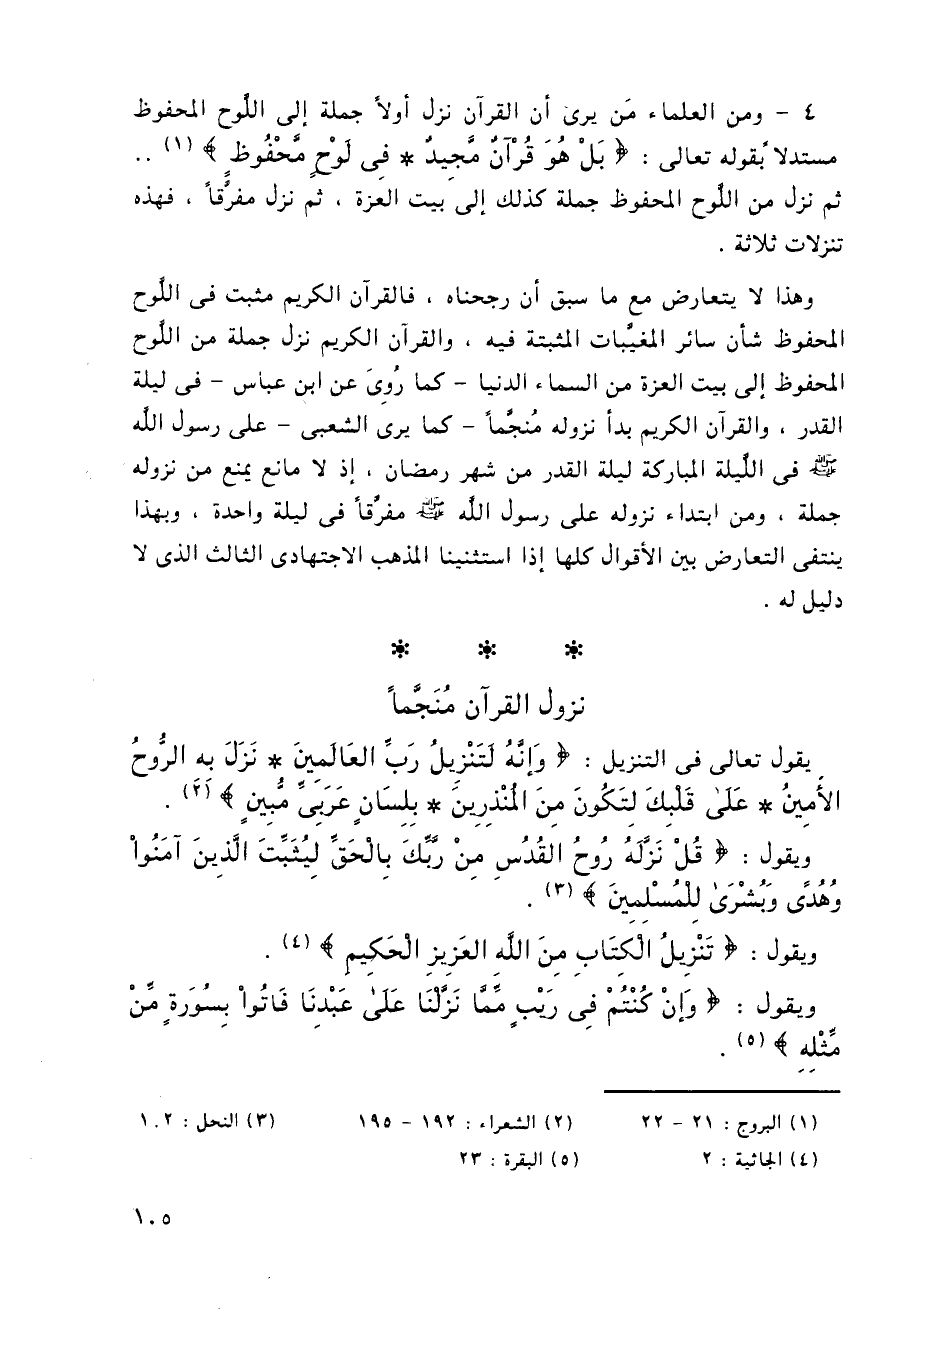 ٤ - ومن العلماء مَن يرى أن القرآن نزل أولاً جملة إلى اللَّوح المحفوظ
مستدلاً بقوله تعالى : ﴿ بَلْ هُوَ قُرْآنٌ مَّجِيدٌ * فِى لَوْحٍ مَّحْفُوظٍ ﴾ (١) ..
ثم نزل من اللَّوح المحفوظ جملة كذلك إلى بيت العزة ، ثم نزل مفرَّقاً ، فهذه
تنزلات ثلاثة .
وهذا لا يتعارض مع ما سبق أن رجحناه ، فالقرآن الكريم مثبت فى اللَّوح
المحفوظ شأن سائر المغيَّبات المثبتة فيه ، والقرآن الكريم نزل جملة من اللَّوح
المحفوظ إلى بيت العزة من السماء الدنيا - كما رُوِىَ عن ابن عباس - فى ليلة
القدر ، والقرآن الكريم بدأ نزوله مُنجَّماً - كما يرى الشعبى - على رسول الله
ﷺ فى اللَّيلة المباركة ليلة القدر من شهر رمضان ، إذ لا مانع يمنع من نزوله
جملة ، ومن ابتداء نزوله على رسول الله ﷺ مفرَّقاً فى ليلة واحدة ، وبهذا
ينتفى التعارض بين الأقوال كلها إذا استثنينا المذهب الاجتهادى الثالث الذى لا
دليل له .
* * *
نزول القرآن مُنَجَّماً
يقول تعالى فى التنزيل : ﴿ وَإِنَّهُ لَتَنْزِيلُ رَبِّ العَالَمِينَ * نَزَلَ بِهِ الرُّوحُ
الأَمِينُ * عَلَىٰ قَلْبِكَ لِتَكُونَ مِنَ المُنْذِرِينَ * بِلِسَانٍ عَرَبِىٍّ مُّبِينٍ ﴾ (٢) .
ويقول : ﴿ قُلْ نَزَّلَهُ رُوحُ القُدُسِ مِنْ رَّبِّكَ بِالْحَقِّ لِيُثَبِّتَ الَّذِينَ آمَنُواْ
وَهُدًى وَبُشْرَىٰ لِلْمُسْلِمِينَ ﴾ (٣) .
ويقول : ﴿ تَنْزِيلُ الْكِتَابِ مِنَ اللَّهِ العَزِيزِ الْحَكِيمِ ﴾ (٤) .
ويقول : ﴿ وَإِنْ كُنْتُمْ فِى رَيْبٍ مِّمَّا نَزَّلْنَا عَلَىٰ عَبْدِنَا فَأْتُواْ بِسُورَةٍ مِّنْ
مِّثْلِهِ ﴾ (٥) .
(١) البروج : ٢١ - ٢٢ (٢) الشعراء : ١٩٢ - ١٩٥ (٣) النحل : ١٠٢
(٤) الجاثية : ٢ (٥) البقرة : ٢٣
١٠٥